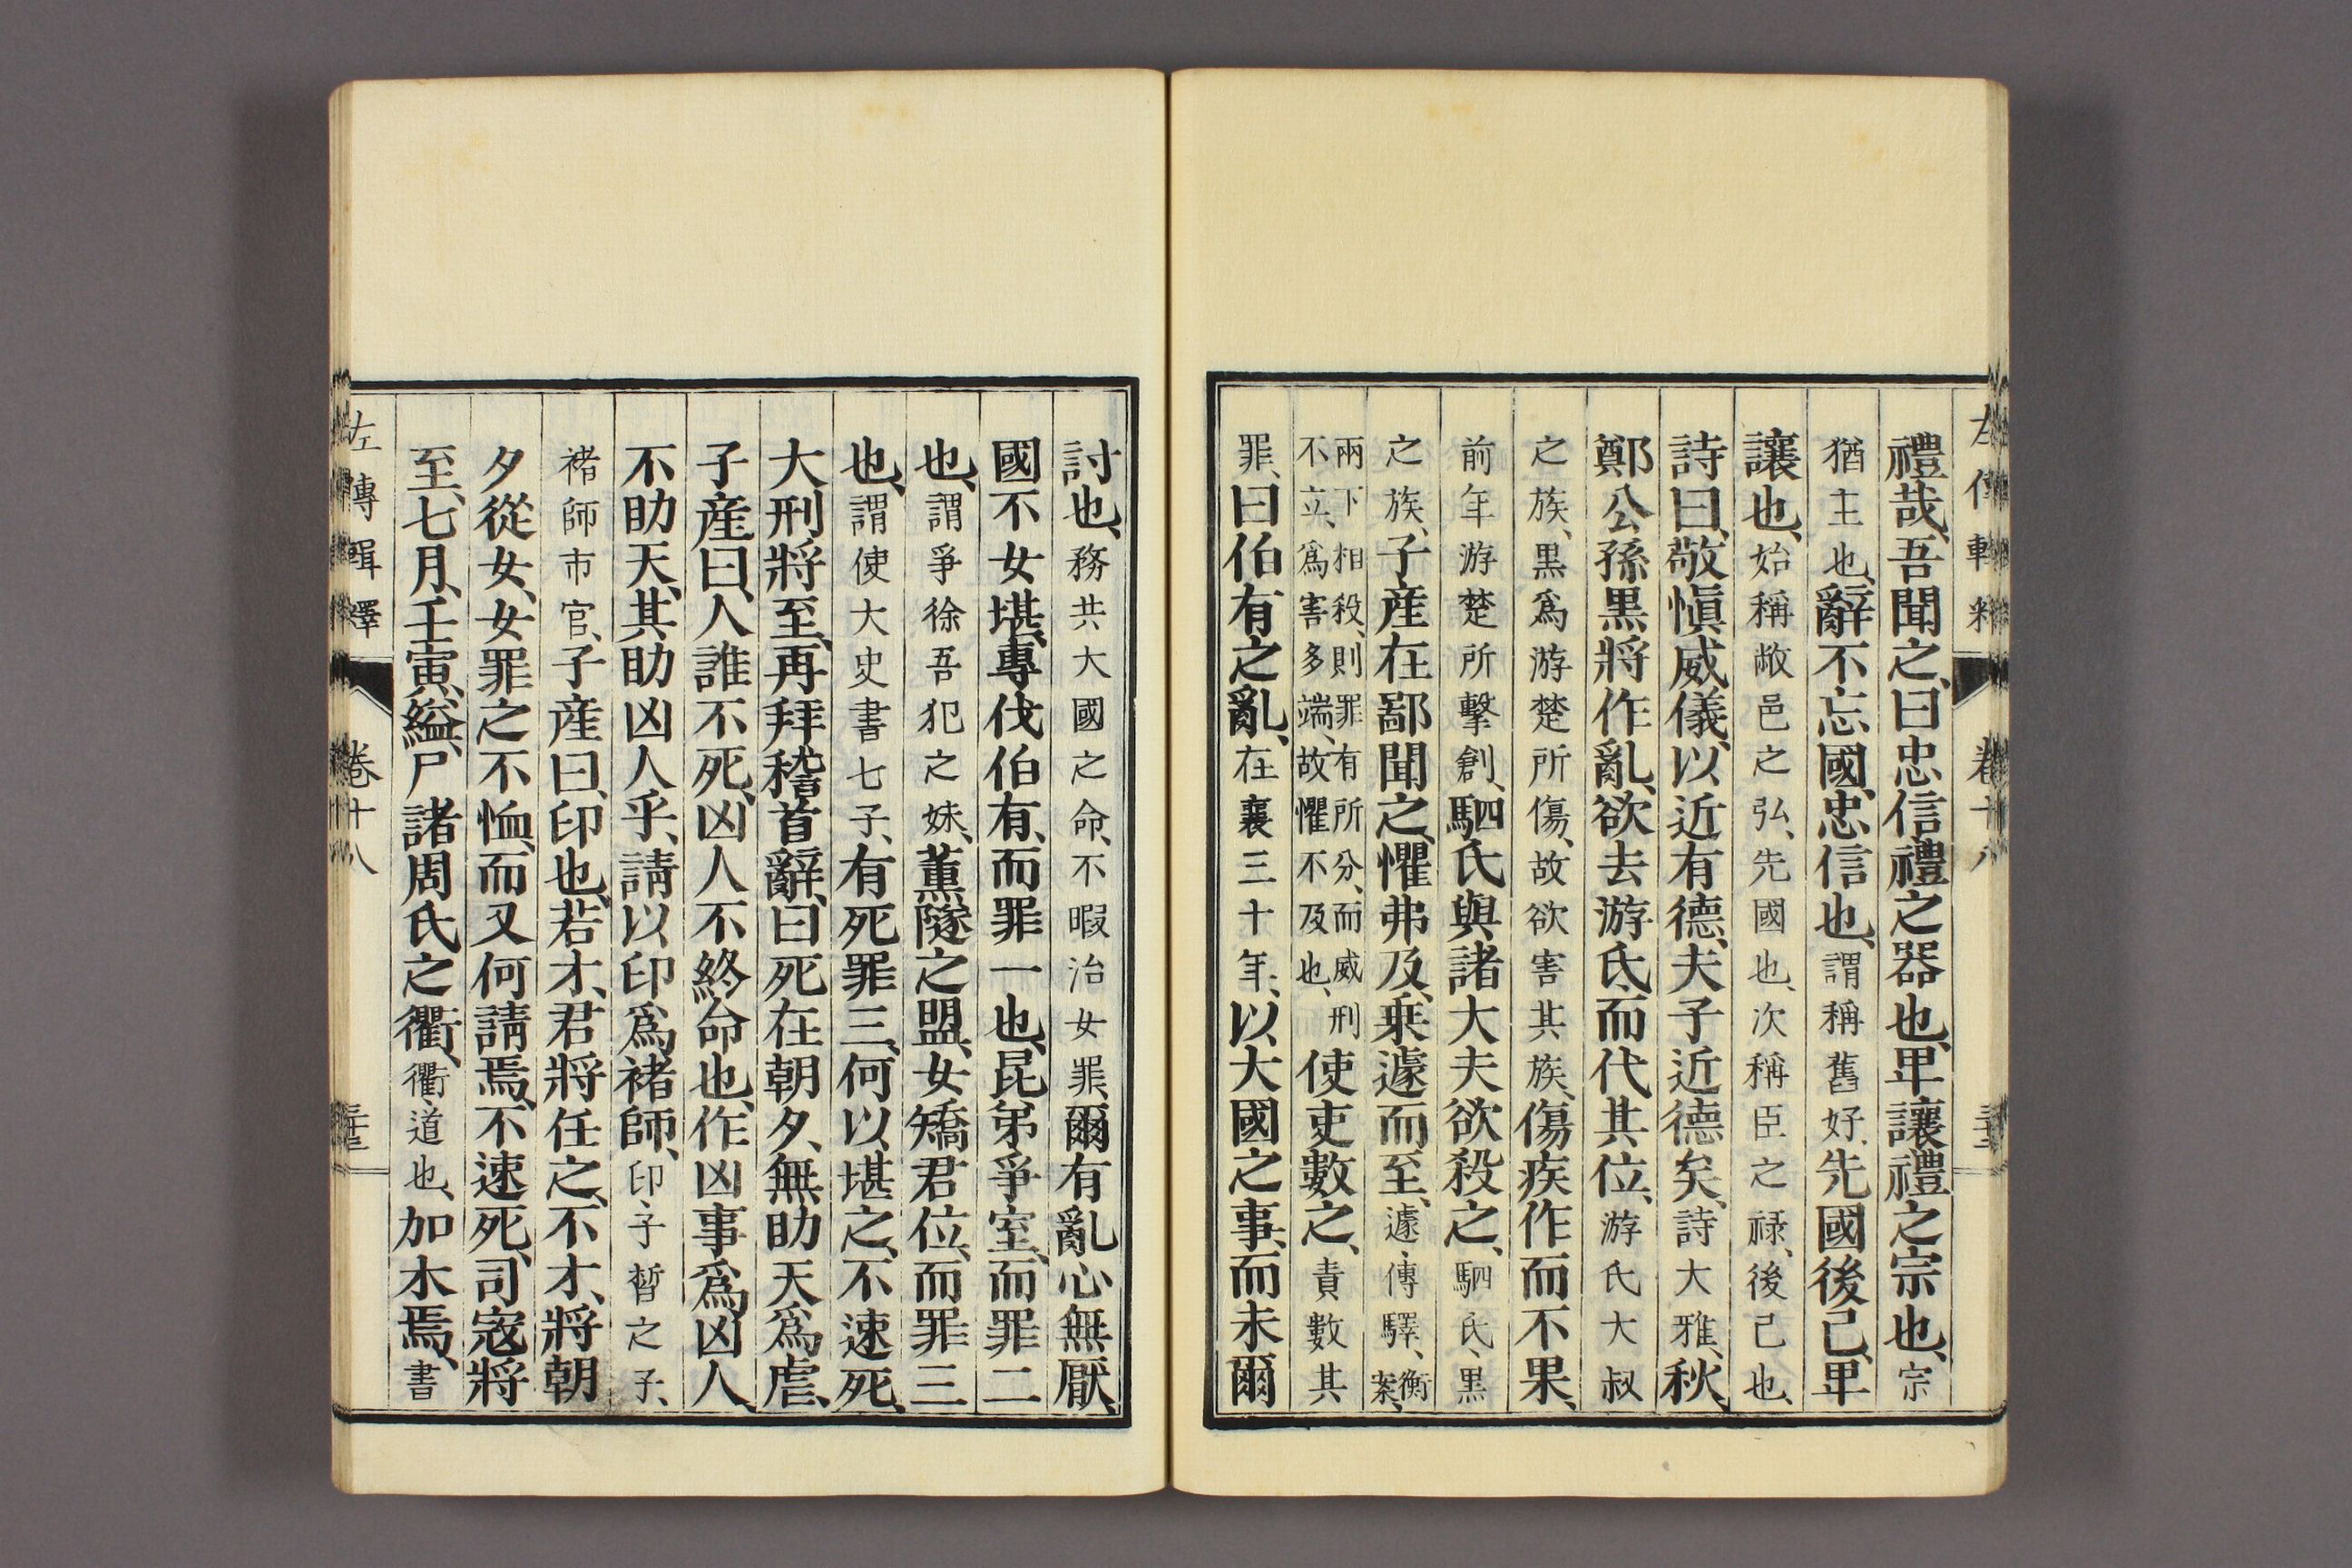 禮哉、吾聞之、曰忠信禮之器也、卑讓禮之宗也、宗
猶主也、辭不忘國、忠信也、謂稱舊好、先國後己、卑
讓也、始稱敝邑之弘、先國也、次稱臣之祿、後己也、
詩曰、敬愼威儀、以近有德、夫子近德矣、詩大雅、秋、
鄭公孫黑將作亂、欲去游氏、而代其位、游氏大叔
之族、黑爲游楚所傷、故欲害其族、傷疾作而不果、
前年游楚所擊創、駟氏與諸大夫欲殺之、駟氏、黑
之族、子產在鄙聞之、懼弗及、乘遽而至、遽、傳驛、衡案、
兩下相殺、則罪有所分、而威刑
不立、爲害多端、故懼不及也、
使吏數之、責數其
罪、曰伯有之亂、在襄三十年、以大國之事、而未爾
左傳輯釋 卷十八
討也、務共大國之命、不暇治女罪、爾有亂心無厭、
國不女堪、專伐伯有、而罪一也、昆弟爭室、而罪二
也、謂爭徐吾犯之妹、薰隧之盟、女矯君位、而罪三
也、謂使大史書七子、有死罪三、何以堪之、不速死、
大刑將至、再拜稽首辭、曰死在朝夕、無助天爲虐、
子產曰、人誰不死、凶人不終命也、作凶事爲凶人、
不助天、其助凶人乎、請以印爲褚師、印、子晳之子、
褚師市官、子產曰、印也、若才、君將任之、不才、將朝
夕從女、女罪之不恤、而又何請焉、不速死、司寇將
至、七月、壬寅、縊、尸諸周氏之衢、衢、道也、加木焉、書
左傳輯釋 卷十八